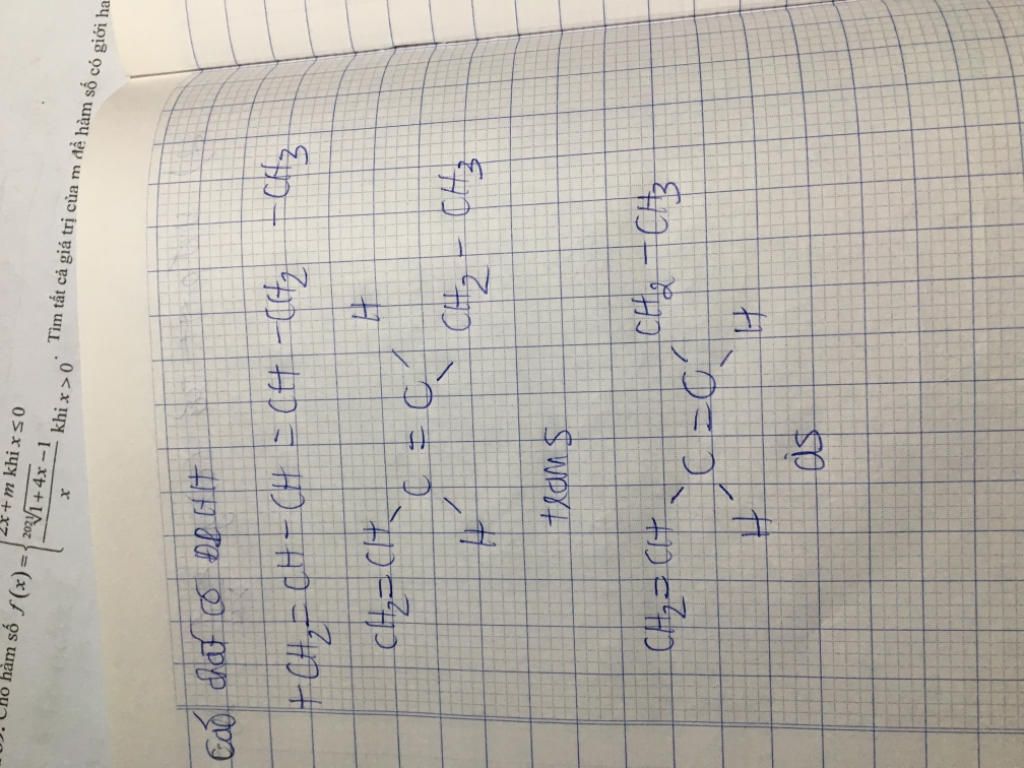 Cho hàm số f(x) = { 2x + m khi x ≤ 0
(²⁰²³√(1 + 4x) − 1)/x khi x > 0 . Tìm tất cả giá trị của m để hàm số có giới hạ
Các chất có ĐPHH
+ CH₂ = CH - CH = CH - CH₂ - CH₃
CH₂ = CH H
C = C
H CH₂ - CH₃
trans
CH₂ = CH CH₂ - CH₃
C = C
H H
cis